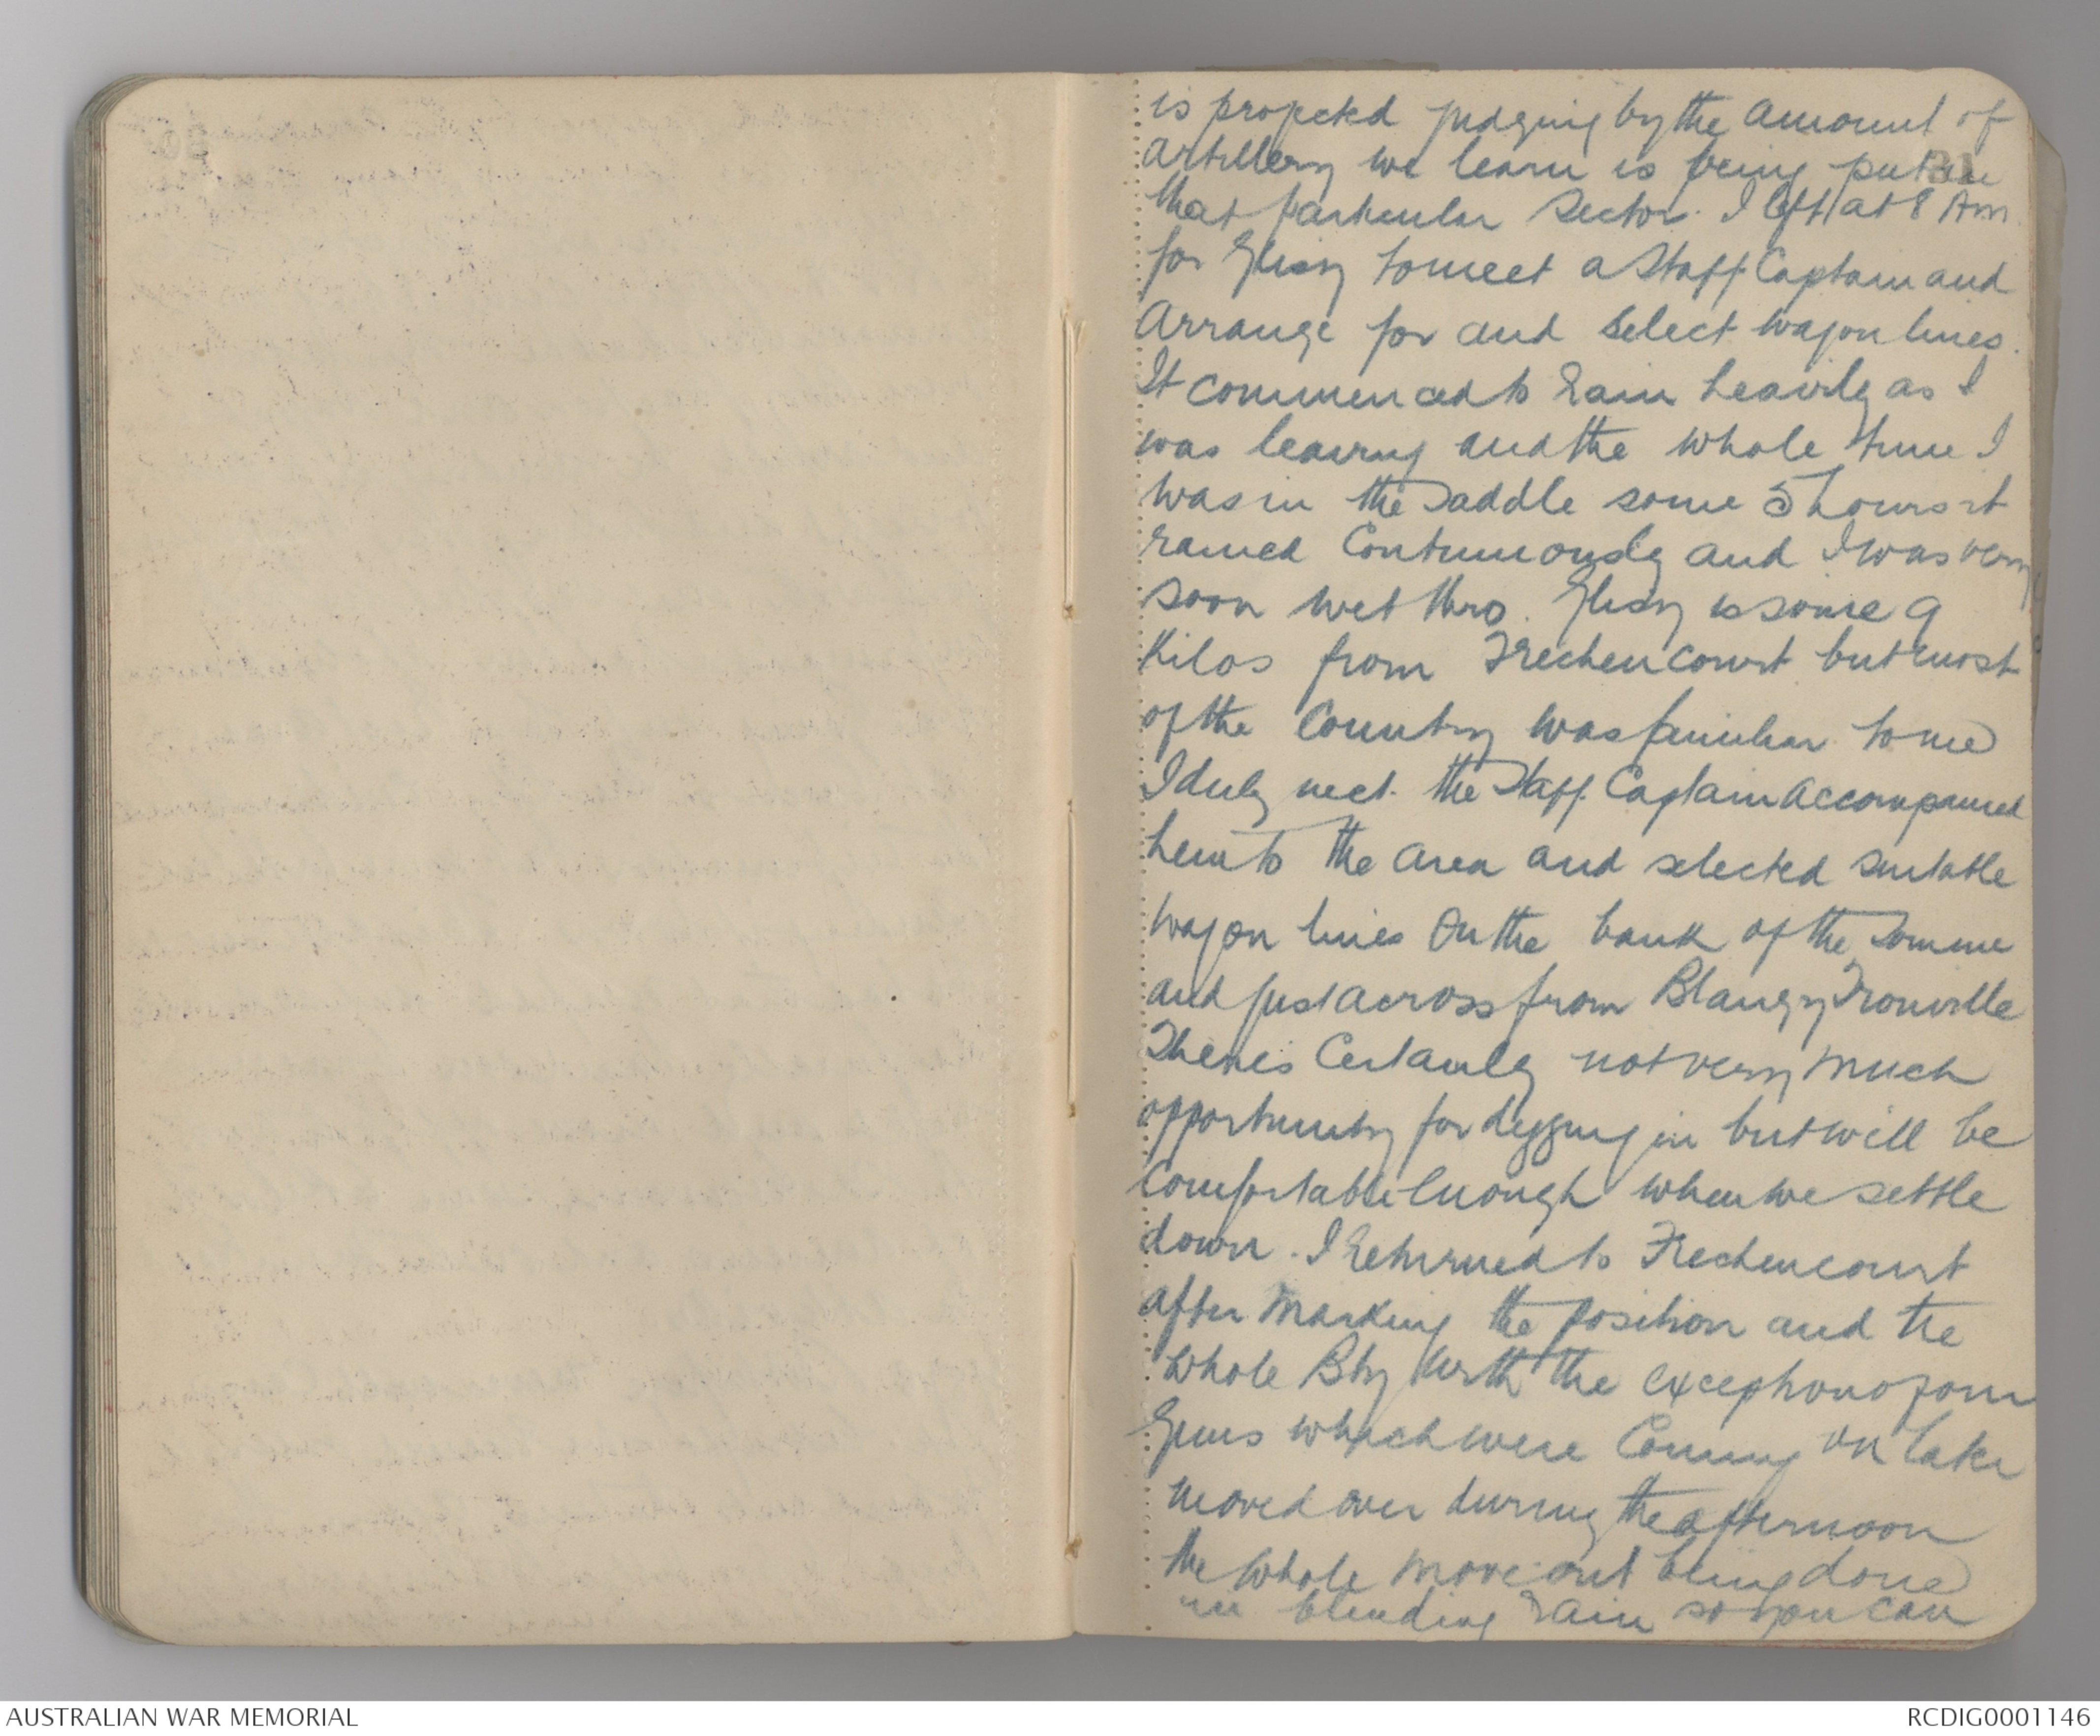 is projected judging by the amount of
artillery we learn is being put in
31
that particular sector. I left at 8 Am
for Glisy to meet a Staff Captain and
Arrange for and select wagon lines.
It commenced to rain heavily as I
was leaving and the whole time I
was in the saddle some 5 hours it
rained Continuously and I was very
soon wet thro. Glisy is some 9
Kilos from Frechencourt but most
of the Country was familiar to me
I duly met the Staff Captain Accompanied
him to the area and selected suitable
wagon lines on the bank of the Somme
and just across from Blangy Tronville
There is Certainly not very much
opportunity for digging in but will be
Comfortable enough when we settle
down. I returned to Frechencourt
after marking the position and the
whole Bty with the exception of our
Guns which were Coming on later
moved over during the afternoon
the whole move out being done
in blinding rain so you can
AUSTRALIAN WAR MEMORIAL
RCDIG0001146